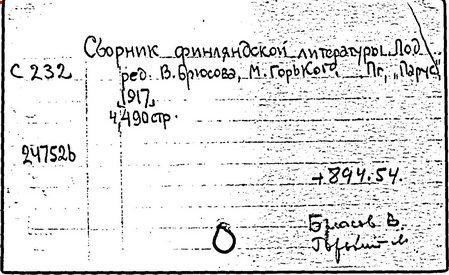 Сборник финляндской литературы. Под
С 232 ред. В. Брюсова, М. Горького, Пг, "Парус",
1917.
4,490 стр.
247526
+894.54.
Брюсов В.
Горький М.